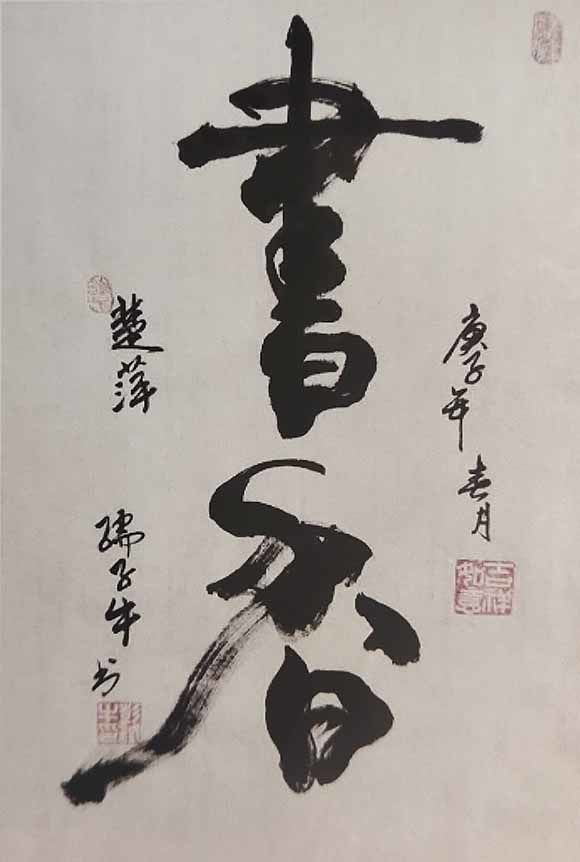 書香
庚子年春月
吉祥如意
楚萍
孺子牛书